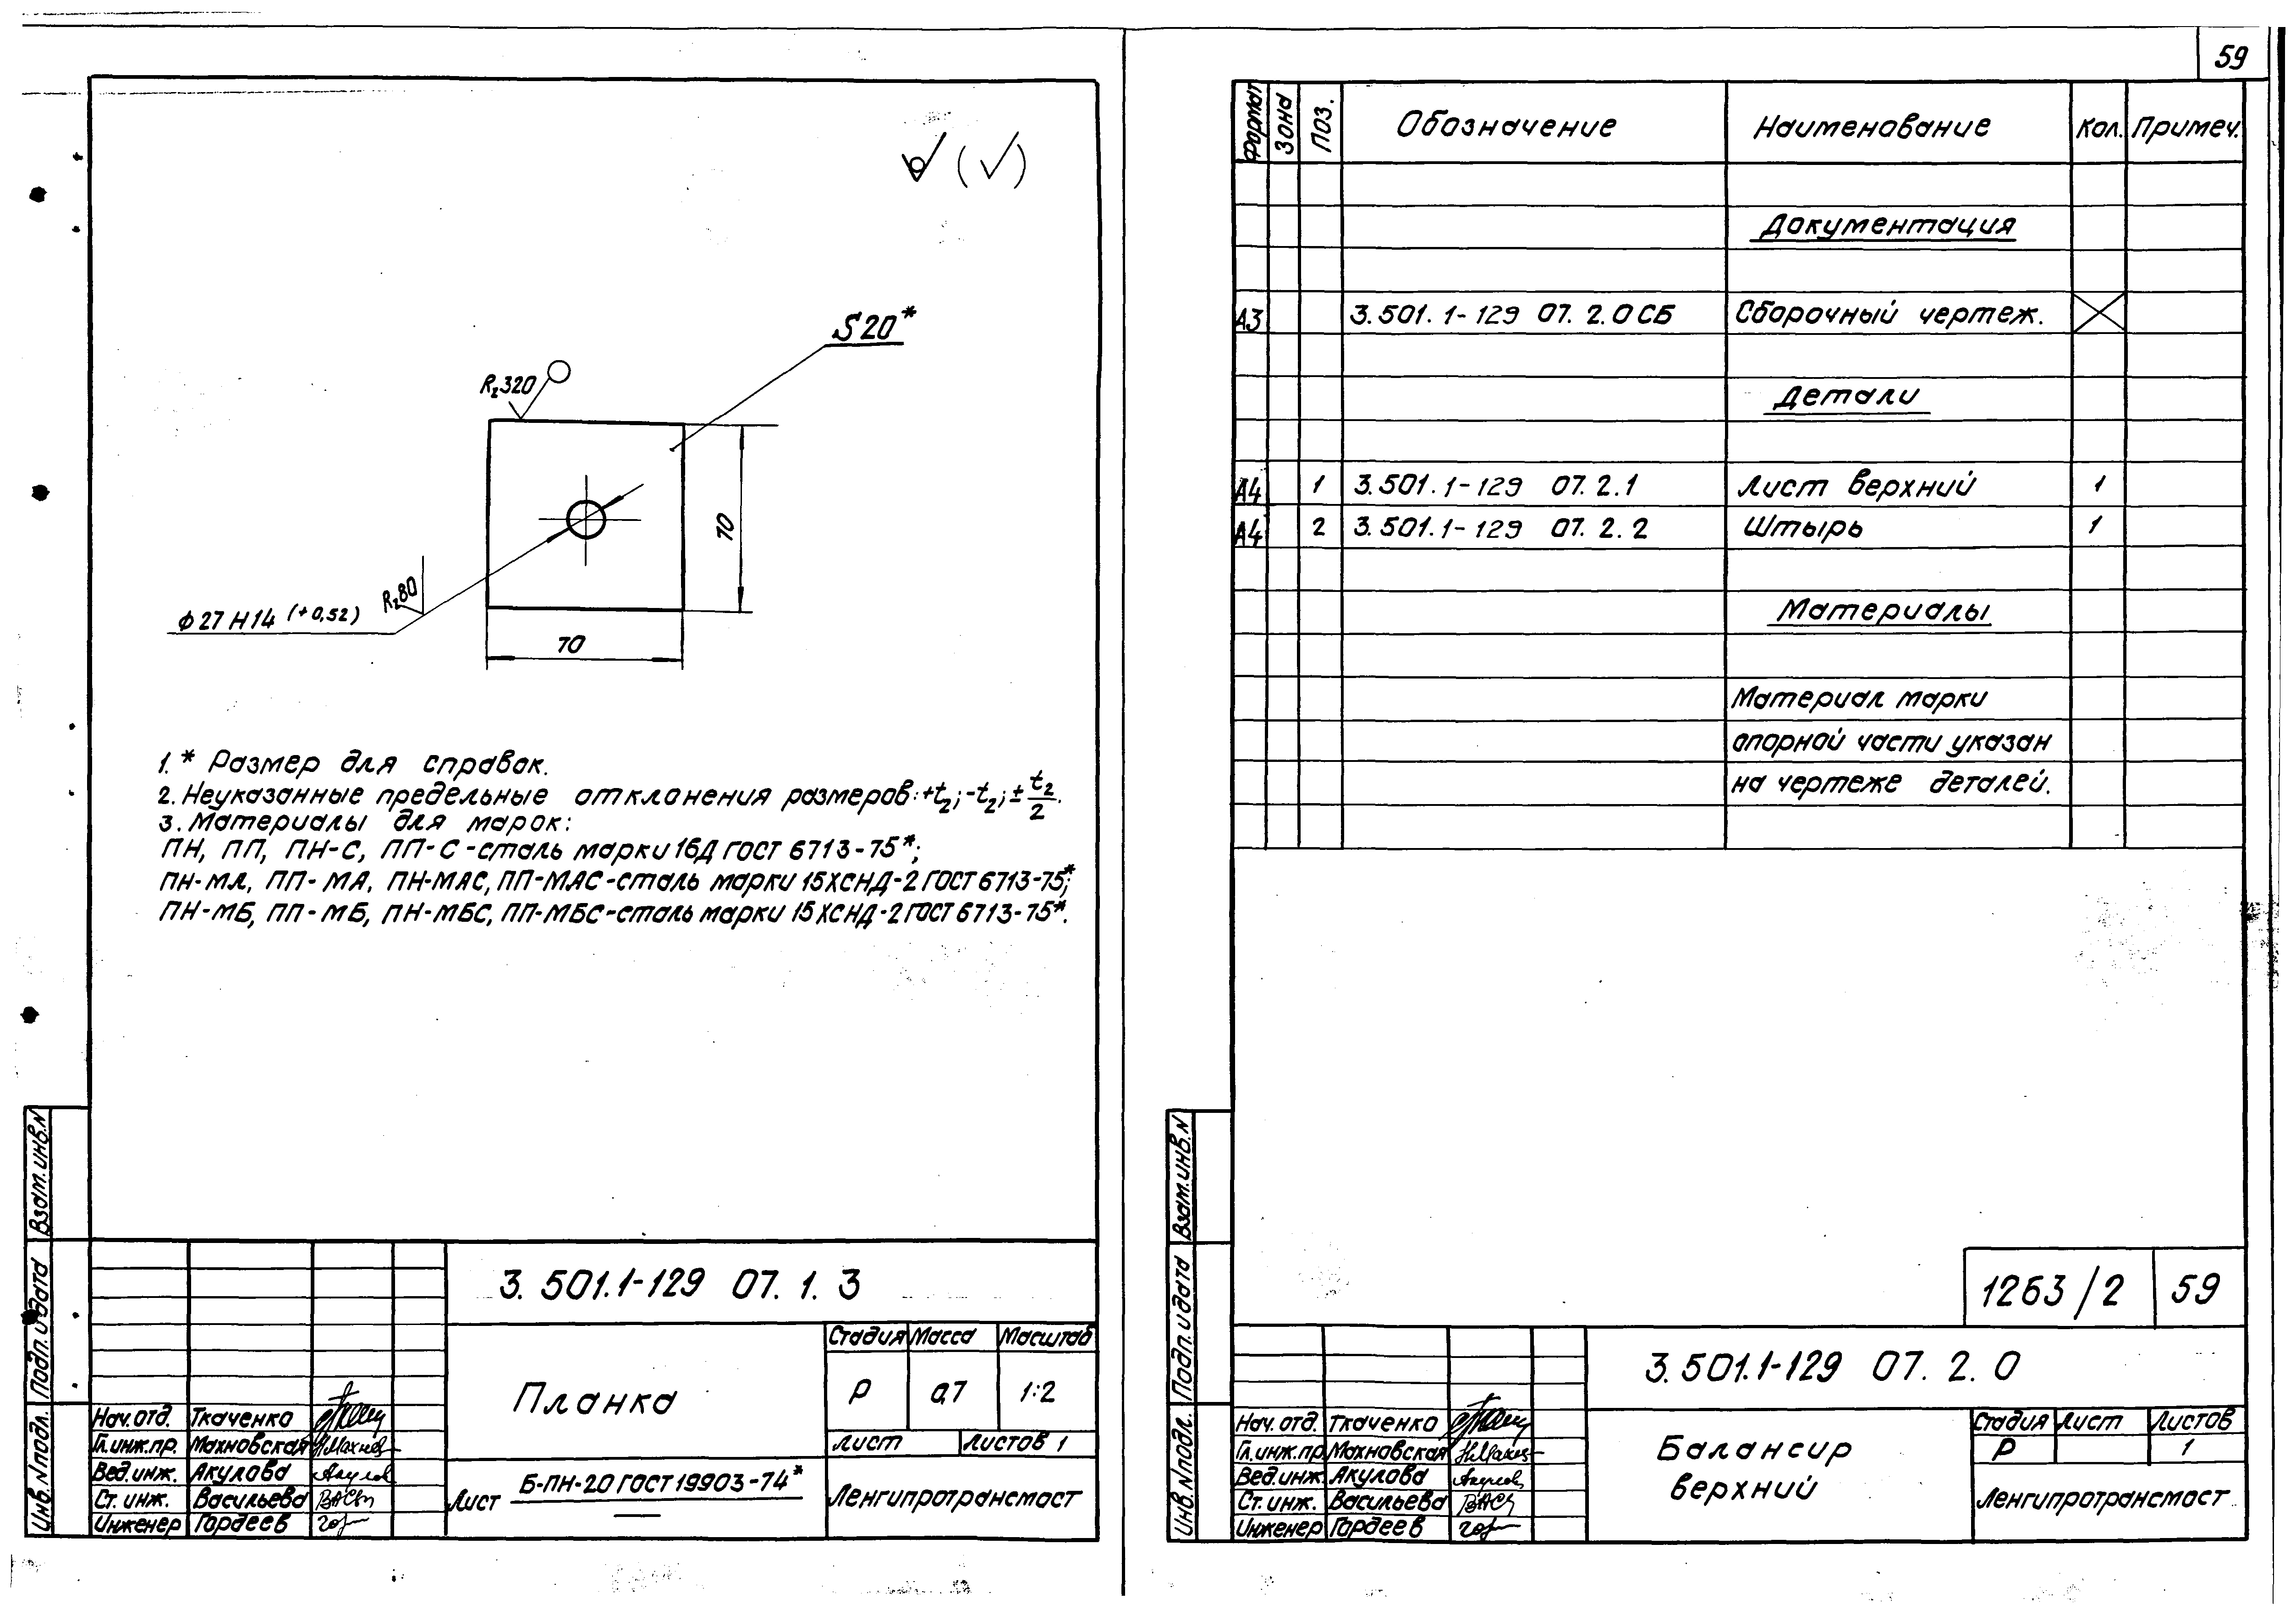 59
S20*
Rz320
70
Rz80
ϕ27H14 (+0,52)
70
1.* Размер для справок.
2. Неуказанные предельные отклонения размеров: +t2; -t2; ± t2/2.
3. Материалы для марок:
ПН, ПП, ПН-С, ПП-С-сталь марки 16Д ГОСТ 6713-75*;
ПН-МА, ПП-МА, ПН-МАС, ПП-МАС-сталь марки 15ХСНД-2 ГОСТ 6713-75*;
ПН-МБ, ПП-МБ, ПН-МБС, ПП-МБС-сталь марки 15ХСНД-2 ГОСТ 6713-75*.
Взам.инв.N
Подп.и дата
Инв.Nподл.
3.501.1-129 07.1.3
Стадия Масса Масштаб
Планка
Р 0,7 1:2
Лист Листов 1
Нач.отд. Ткаченко
Гл.инж.пр. Махновская
Вед.инж. Акулова
Ст.инж. Васильева
Инженер Гордеев
Лист Б-ПН-20 ГОСТ 19903-74*
Ленгипротрансмост
Формат Зона Поз. Обозначение Наименование Кол. Примеч.
Документация
А3 3.501.1-129 07.2.0СБ Сборочный чертеж.
Детали
А4 1 3.501.1-129 07.2.1 Лист верхний 1
А4 2 3.501.1-129 07.2.2 Штырь 1
Материалы
Материал марки
опорной части указан
на чертеже деталей.
Взам.инв.N
Подп.и дата
Инв.Nподл.
1263/2 59
3.501.1-129 07.2.0
Нач.отд. Ткаченко
Гл.инж.пр. Махновская
Вед.инж. Акулова
Ст.инж. Васильева
Инженер Гордеев
Балансир
верхний
Стадия Лист Листов
Р 1
Ленгипротрансмост